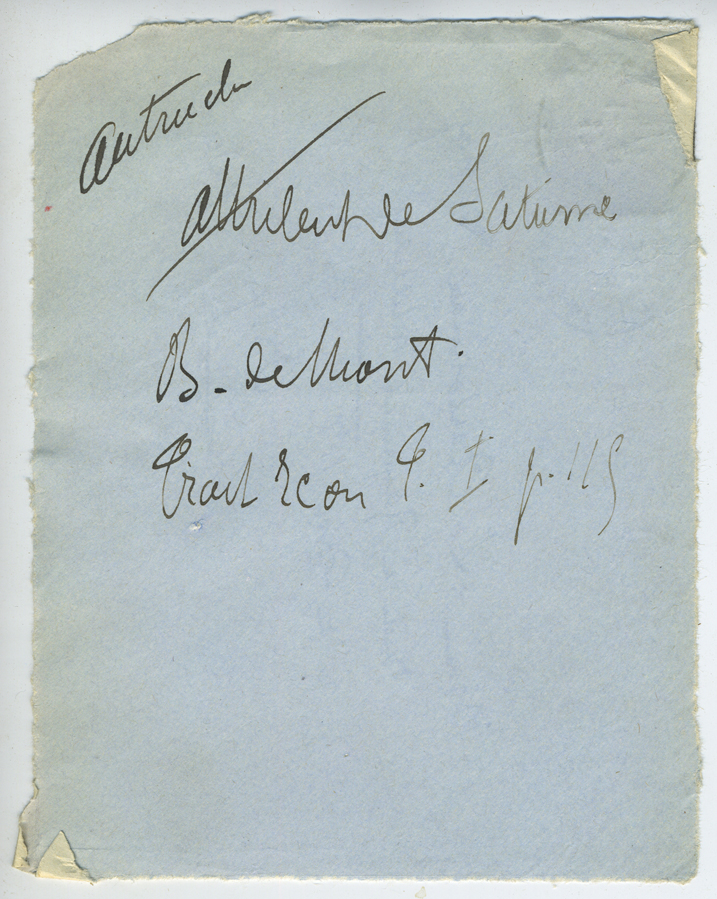 Autruche
Attribut de Saturne
B. de Mont.
Trait Icon T. I p. 115